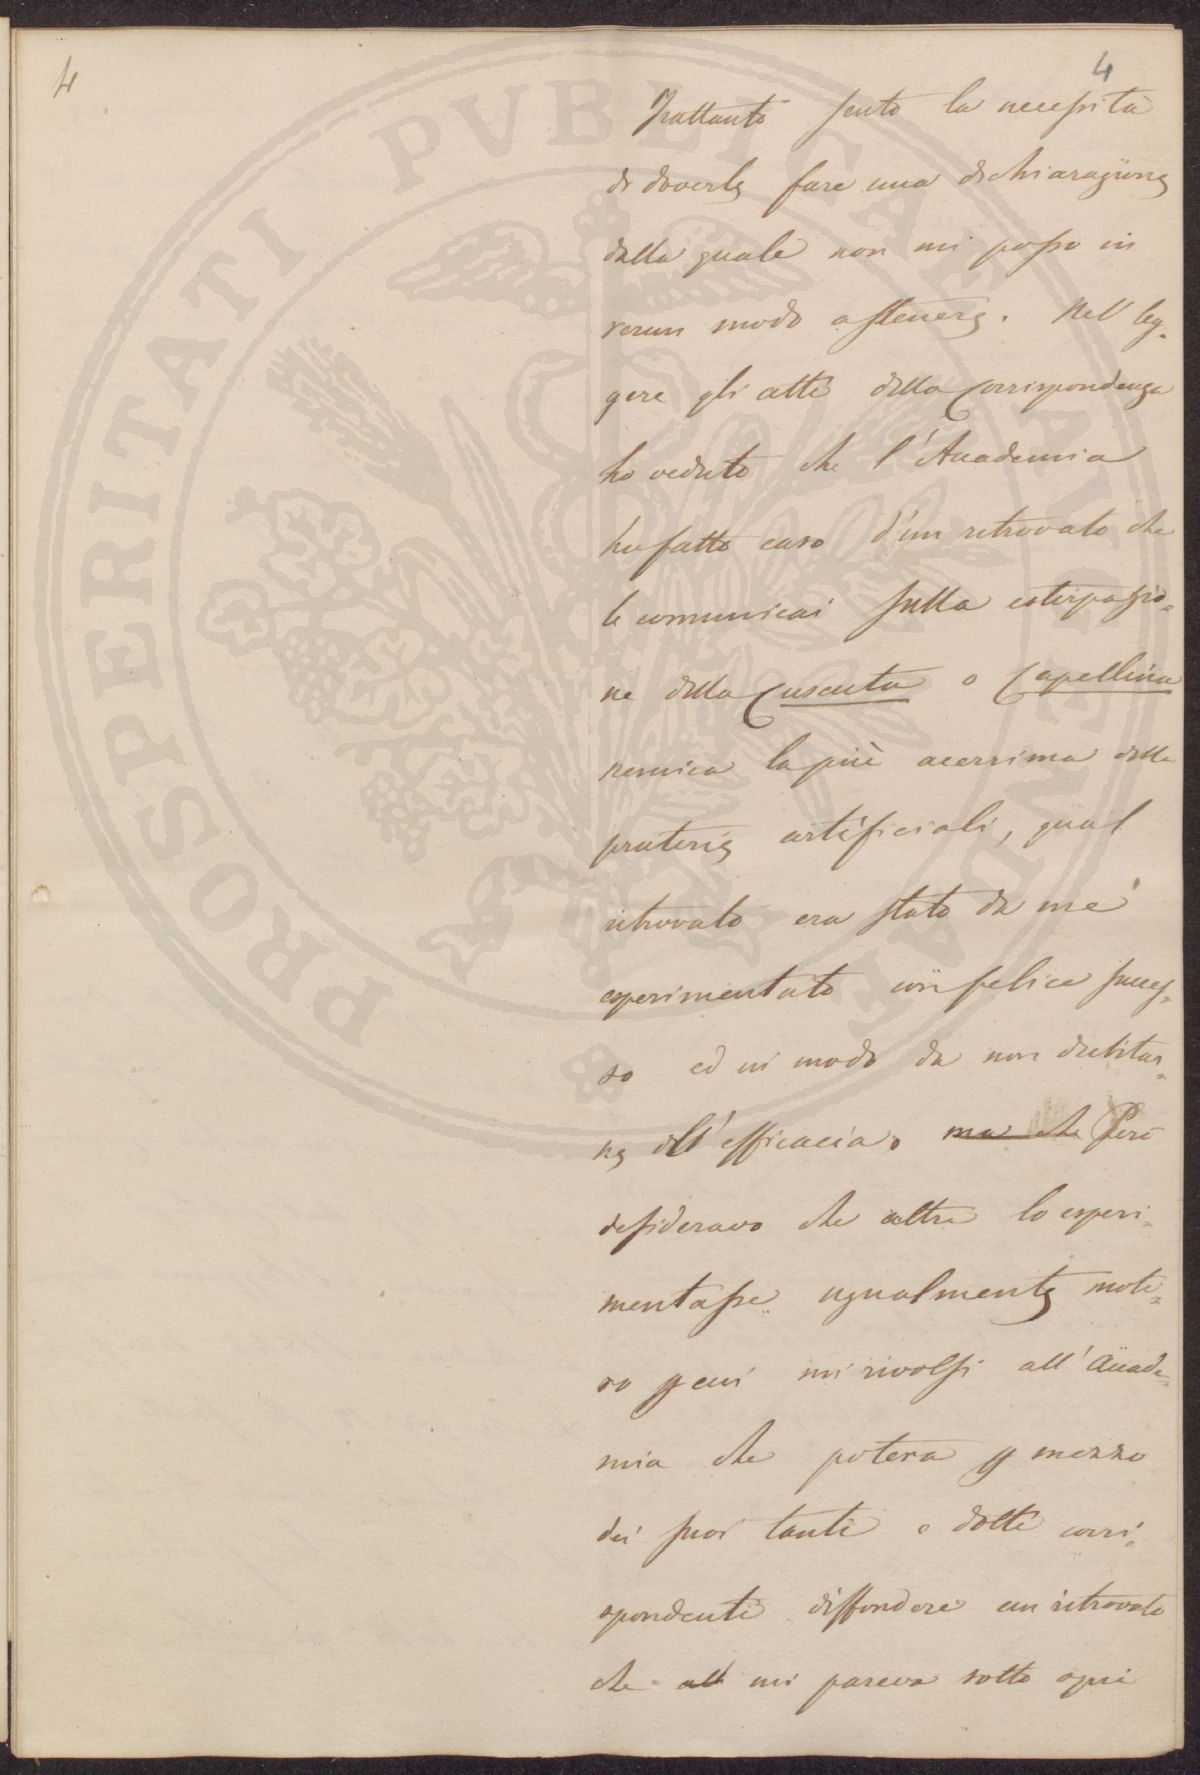 4
4
Frattanto sento la necessità
di doverle fare una dichiarazione
dalla quale non mi posso in
verun modo astenere. Nel leg=
gere gli atti della Corrispondenza
ho veduto che l'Accademia
ha fatto caso d'un ritrovato che
le comunicai sulla estirpazio=
ne della Cuscuta o Capellina
nemica la più acerrima delle
praterie artificiali, qual
ritrovato era stato da me
esperimentato con felice succes=
so ed in modo da non dubitar=
ne dell'efficacia. ma che Però
desideravo che altri lo esperi=
mentasse ugualmente moti=
vo per cui mi rivolsi all'Accade=
mia che poteva per mezzo
dei suoi tanti e dotti corri=
spondenti diffondere un ritrovato
che mi pareva sotto ogni
PROSPERITATI PVBLICAE AVGENDAE